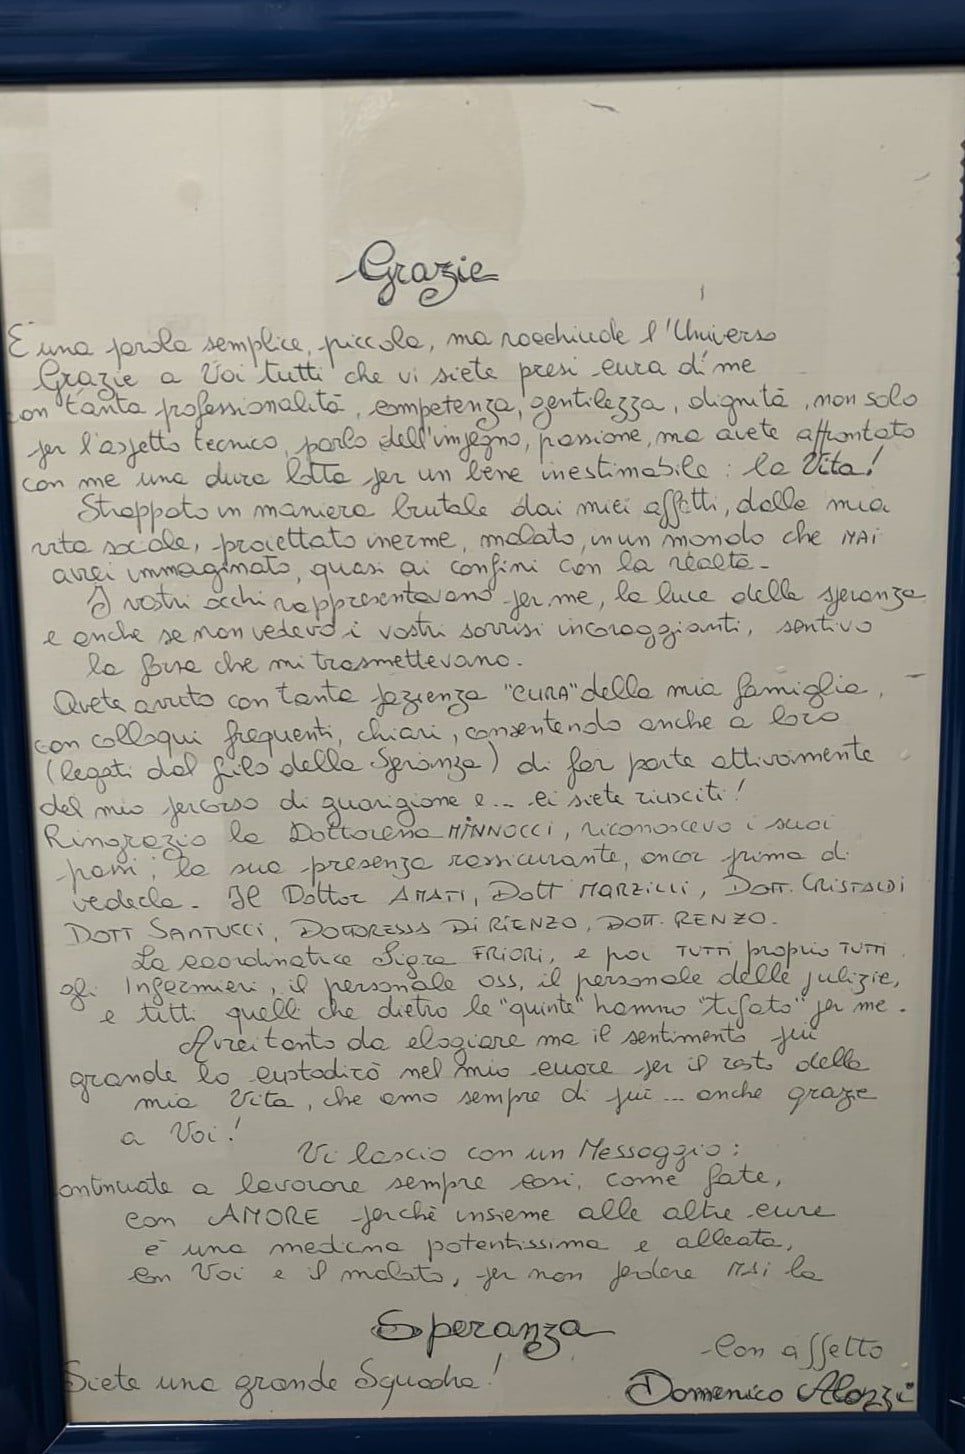 Grazie
È una parola semplice, piccola, ma racchiude l'Universo
Grazie a Voi tutti che vi siete presi cura di me
con tanta professionalità, competenza, gentilezza, dignità, non solo
per l'aspetto tecnico, parlo dell'impegno, passione, ma avete affrontato
con me una dura lotta per un bene inestimabile: la Vita!
Strappato in maniera brutale dai miei affetti, dalla mia
vita sociale, proiettato inerme, malato, in un mondo che MAI
avrei immaginato, quasi ai confini con la realtà -
I vostri occhi rappresentavano per me, la luce della speranza
e anche se non vedevo i vostri sorrisi incoraggianti, sentivo
la forza che mi trasmettevano.
Avete avuto con tanta pazienza "CURA" della mia famiglia,
con colloqui frequenti, chiari, consentendo anche a loro
(legati dal filo della Speranza) di far parte attivamente
del mio percorso di guarigione e... ci siete riusciti!
Ringrazio la Dottoressa MINNOCCI, riconoscevo i suoi
passi, la sua presenza rassicurante, ancor prima di
vederla - Il Dottor AMATI, DOTT MARZILLI, DOTT. CRISTALDI
DOTT SANTUCCI, DOTTORESSA DI RIENZO, DOTT. RENZO -
La coordinatice Sigra FRIORI, e poi TUTTI proprio TUTTI
gli Infermieri, il personale OSS, il personale delle pulizie,
e tutti quelli che dietro le "quinte" hanno "tifato" per me.
Avrei tanto da elogiare ma il sentimento più
grande lo custodirò nel mio cuore per il resto della
mia Vita, che amo sempre di più... anche grazie
a Voi!
Vi lascio con un Messaggio:
ontinuate a lavorare sempre così, come fate,
con AMORE perchè insieme alle altre cure
è una medicina potentissima e alleata,
con Voi e il malato, per non perdere MAI la
Speranza
Con affetto
Siete una grande Squadra!
Domenico Alozzi